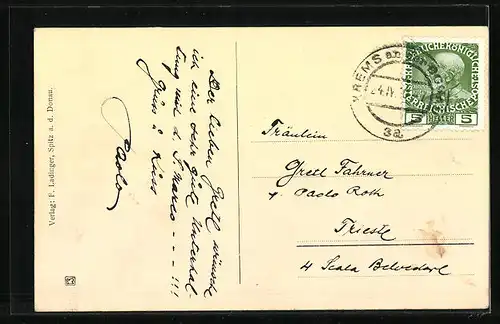 Verlag: F. Ladinger, Spitz a. d. Donau.
Der lieben Gretl wünsche
ich eine sehr gute Unterhal-
tung mit d. S. Marco - - - !!!
Gruss u Kuss
Paola
KREMS a.d.
24.IV.
3a
KAISERLICHE KÖNIGLICHE
ÖSTERREICHISCHE POST
5 HELLER 5
Fräulein
Gretl Fahrner
Paolo Roth
Trieste
4 Scala Belvedere